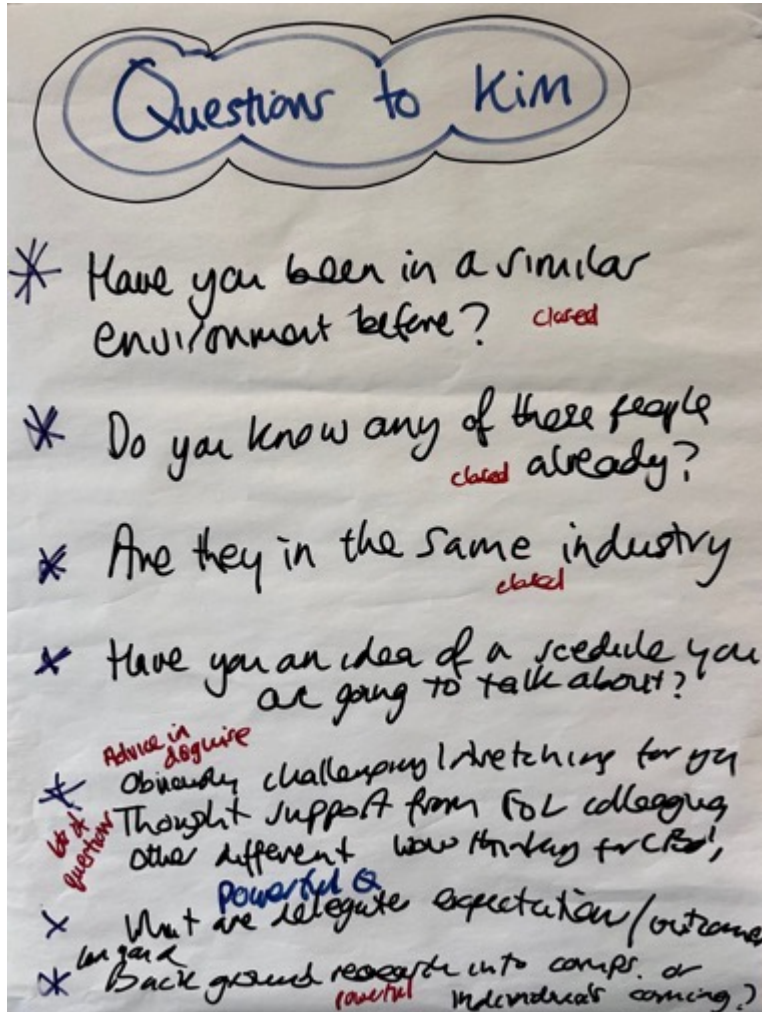 Questions to Kim
Have you been in a similar
environment before? closed
Do you know any of these people
closed already?
Are they in the same industry
closed
Have you an idea of a scedule you
are going to talk about?
Advice in
disguise
Obviously challenging / stretching for you
lots of
questions
Thought support from colleagues
other different thinking for
Powerful Q
What are delegate expectation/outcomes
Back ground research into comps. or
powerful individuals coming?